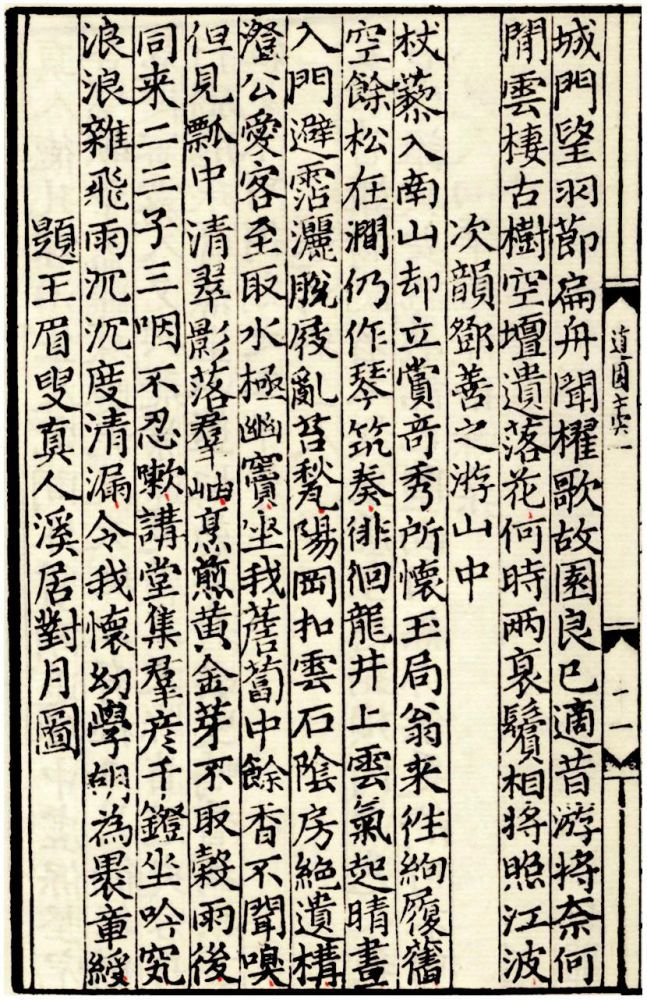 城門望羽節扁舟聞櫂歌故園良已適昔游將奈何
閒雲棲古樹空壇遺落花何時兩衰鬢相將照江波
次韻鄧善之游山中
杖藜入南山却立賞竒秀所懷玉局翁来往絇履舊
空餘松在澗仍作琴筑奏徘徊龍井上雲氣起晴晝
入門避霑灑脫屐亂苔甃陽岡扣雲石陰房絕遺構
澄公愛客至取水極幽竇坐我薝蔔中餘香不聞嗅
但見瓢中清翠影落羣岫烹煎黄金芽不取穀雨後
同来二三子三咽不忍嗽講堂集羣彦千鐙坐吟究
浪浪雜飛雨沉沉度清漏令我懷幼學胡為裹章綬
題王眉叟真人溪居對月圖
道園